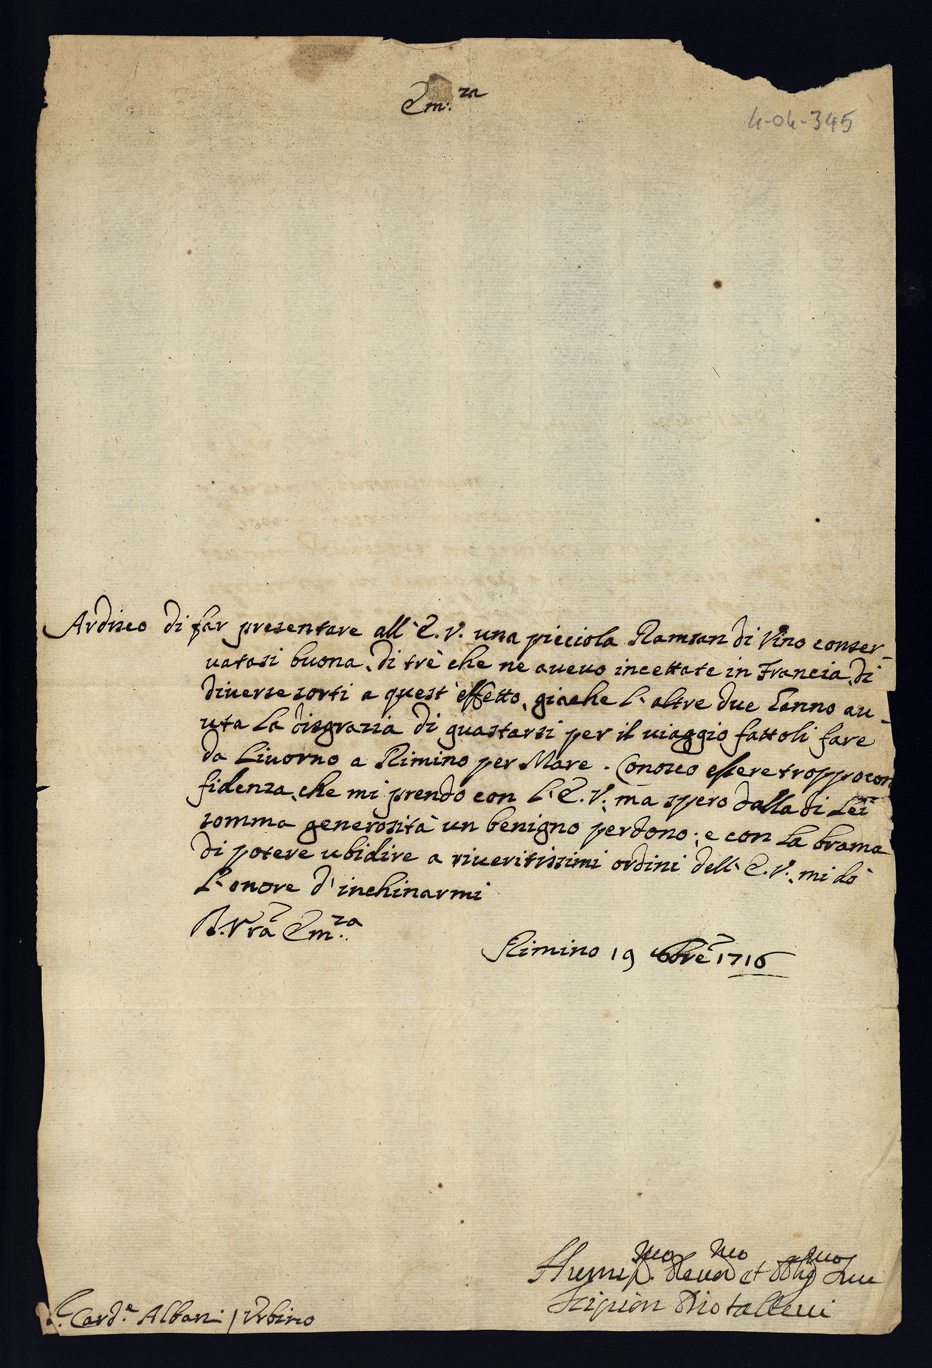 Em.za
4-04-345
Ardisco di far presentare all' E. V. una picciola di Vino conser-
vatasi buona, di trè che ne avevo incettate in Francia, di
diverse sorti a quest' effetto, giache l' altre due anno au-
uta la disgrazia di guastarsi per il viaggio fattoli fare
da Livorno a Rimino per Mare. Conosco essere troppo con
fidenza, che mi prendo con l' E. V., ma spero dalla di Lei
somma generosità un benigno perdono; e con la brama
di potere ubidire a riveritissimi ordini dell' E. V., mi dò
l' onore d' inchinarmi
D. Vra Em.za
Rimino 19 1716
Humiss.mo Dev.mo et Oblig.mo
Scipion Diotallevi
Card.e Albani / Urbino